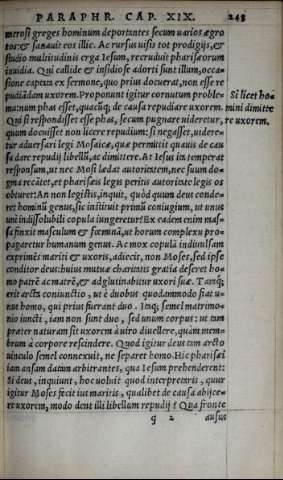 PARAPHR. CAP. XIX. 243
merosi greges hominum deportantes secum uarios ægro
tos: & sanauit eos illic. Ac rursus uisis tot prodigijs, &
studio multitudinis erga Iesum, recruduit pharisæorum
inuidia. Qui callide & insidiose adorti sunt illum, occa=
sione captata ex sermone, quo prius docuerat, non esse re
pudiãdam uxorem. Proponunt igitur cornutum proble=
ma: num phas esset, quacũq; de causa repudiare uxorem.
Si licet ho=
mini dimitte
re uxorem.
Qui si respondisset esse phas, secum pugnare uideretur,
quum docuisset non licere repudium: si negasset, uidere=
tur aduersari legi Mosaicæ, quæ permittit quauis de cau
sa dare repudij libellũ, ac dimittere. At Iesus ita temperat
responsum, ut nec Mosi lædat autoritatem, nec suum do=
gma recãtet, et pharisæis legis peritis autoritate legis os
obturet: An non legistis, inquit, quòd quum deus conde=
ret hominũ genus, sic instituit primũ coniugium, ut unus
uni indissolubili copula iungeretur? Ex eadem enim mas=
sa finxit masculum & fœminã, ut horum complexu pro=
pagaretur humanum genus. Ac mox copulã indiuulsam
exprimẽs mariti & uxoris, adiecit, non Moses, sed ipse
conditor deus: huius mutuæ charitatis gratia deseret ho=
mo patrẽ ac matrẽ, & adglutinabitur uxori suæ. Tanq;
erit arcta coniunctio, ut è duobus quodammodo fiat u=
nus homo, qui prius fuerant duo. Itaq; semel matrimo=
nio iuncti, iam non sunt duo, sed unum corpus: ut tam
præter naturam sit uxorem à uiro diuellere, quàm mem=
brum à corpore rescindere. Quod igitur deus tam arcto
uinculo semel connexuit, ne separet homo. Hic pharisæi
iam ansam datam arbitrantes, qua Iesum prehenderent:
Si deus, inquiunt, hoc uoluit quod interpretaris, quur
igitur Moses fecit ius maritis, qualibet de causa abijce=
re uxorem, modo dent illi libellum repudij? Qua fronte
q 2 ausus